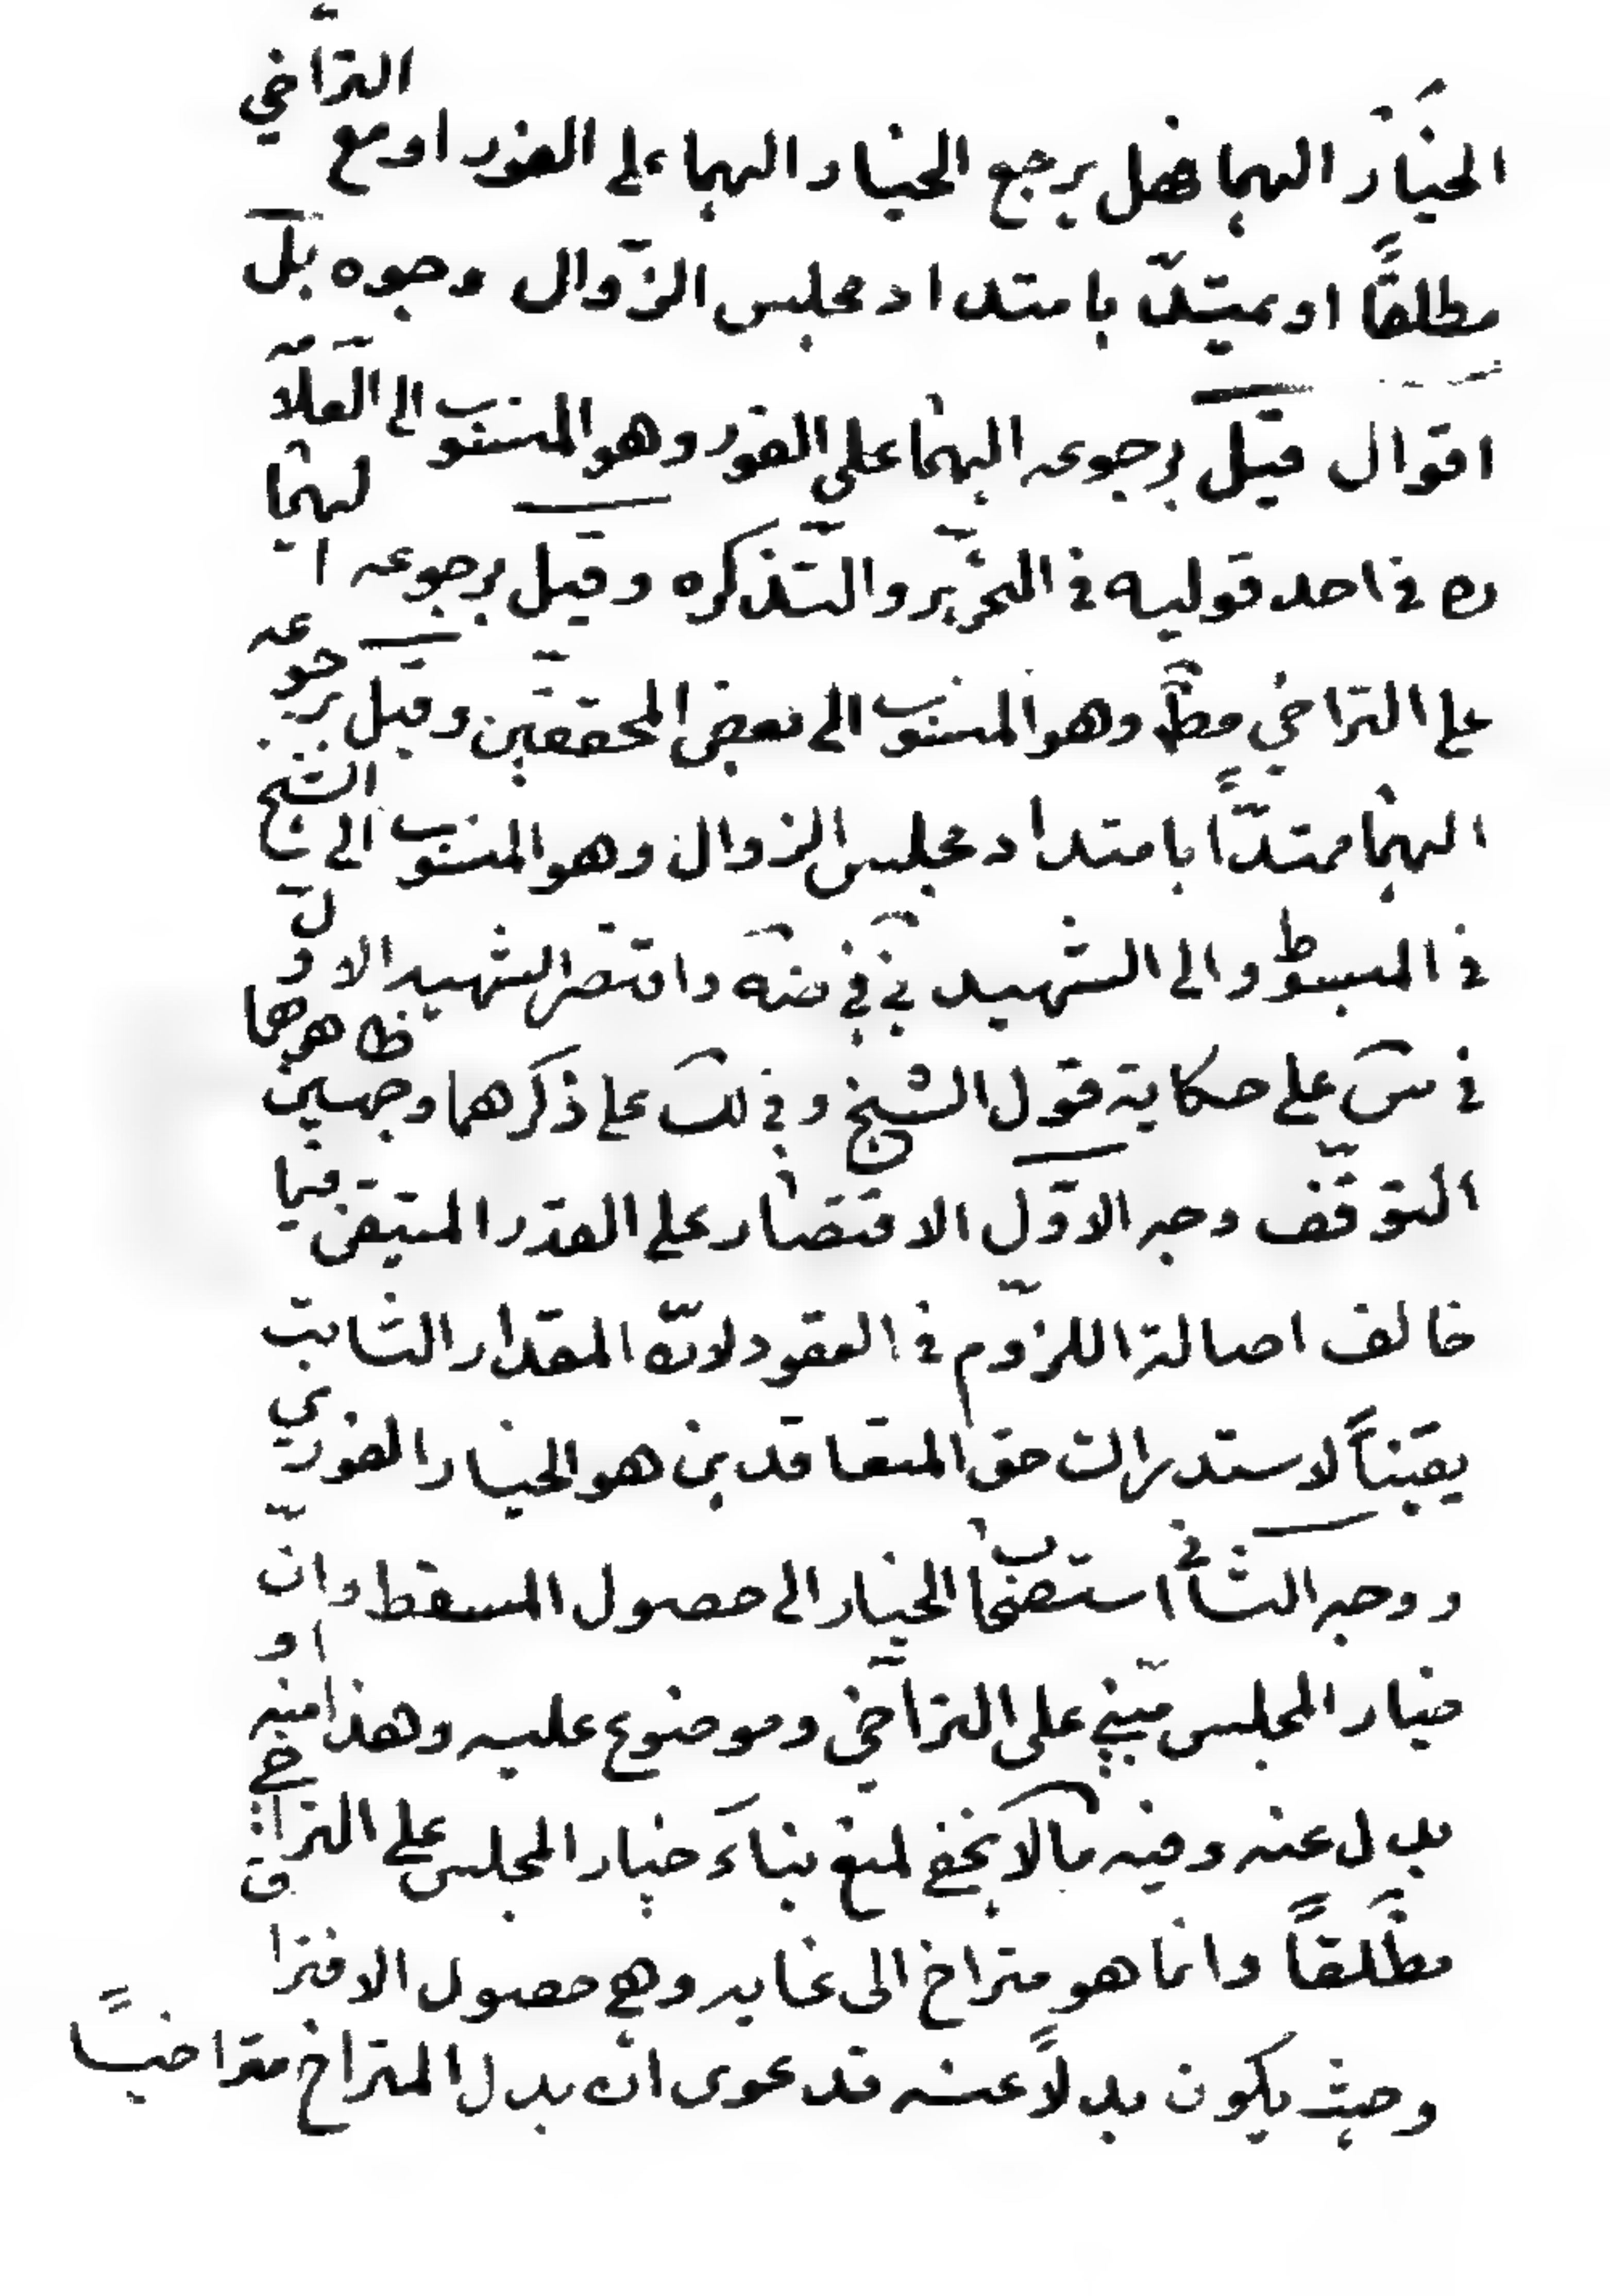 الخيار اليهما فهل يرجع الخيار اليهما على الفور او مع التراخي
مطلقاً او يمتدّ بامتداد مجلس الزّوال وجوه بل
اقوال قيل برجوعه اليهما على الفور وهو المنسوب الى العلّامه
ره في احد قوليه في التحرير والتّذكره وقيل برجوعه اليهما
على التراخي مط وهو المنسوب الى بعض المحققين وقيل برجوعه
اليهما ممتدّاً بامتداد مجلس الزوال وهو المنسوب الى الشيخ
في المبسوط والى الشهيد ني في ضه واقتصر الشهيد الاوّل
في س على حكاية قول الشيخ وفي لك على ذكرهما وجهين ظاهرهما
التوقّف وجه الاوّل الاقتصار على القدر المتيقن فيما
خالف اصالة اللزوم في العقود ولانّه المقدار الثابت
يقيناً لاستدراك حق المتعاقدين هو الخيار الفوري
ووجه الثاني استصحاب الخيار الى حصول المسقط وانّ
خيار المجلس مبني على التراخي وموضوع عليه وهذا منه او
بدل عنه وفيه ما لا يخفى لمنع بناء خيار المجلس على التراخي
مطلقاً وانما هو متراخ الى غايه وهي حصول الافتراق
وحيث يكون بدلاً عنه فدعوى ان بدل المتراخ متراخياً